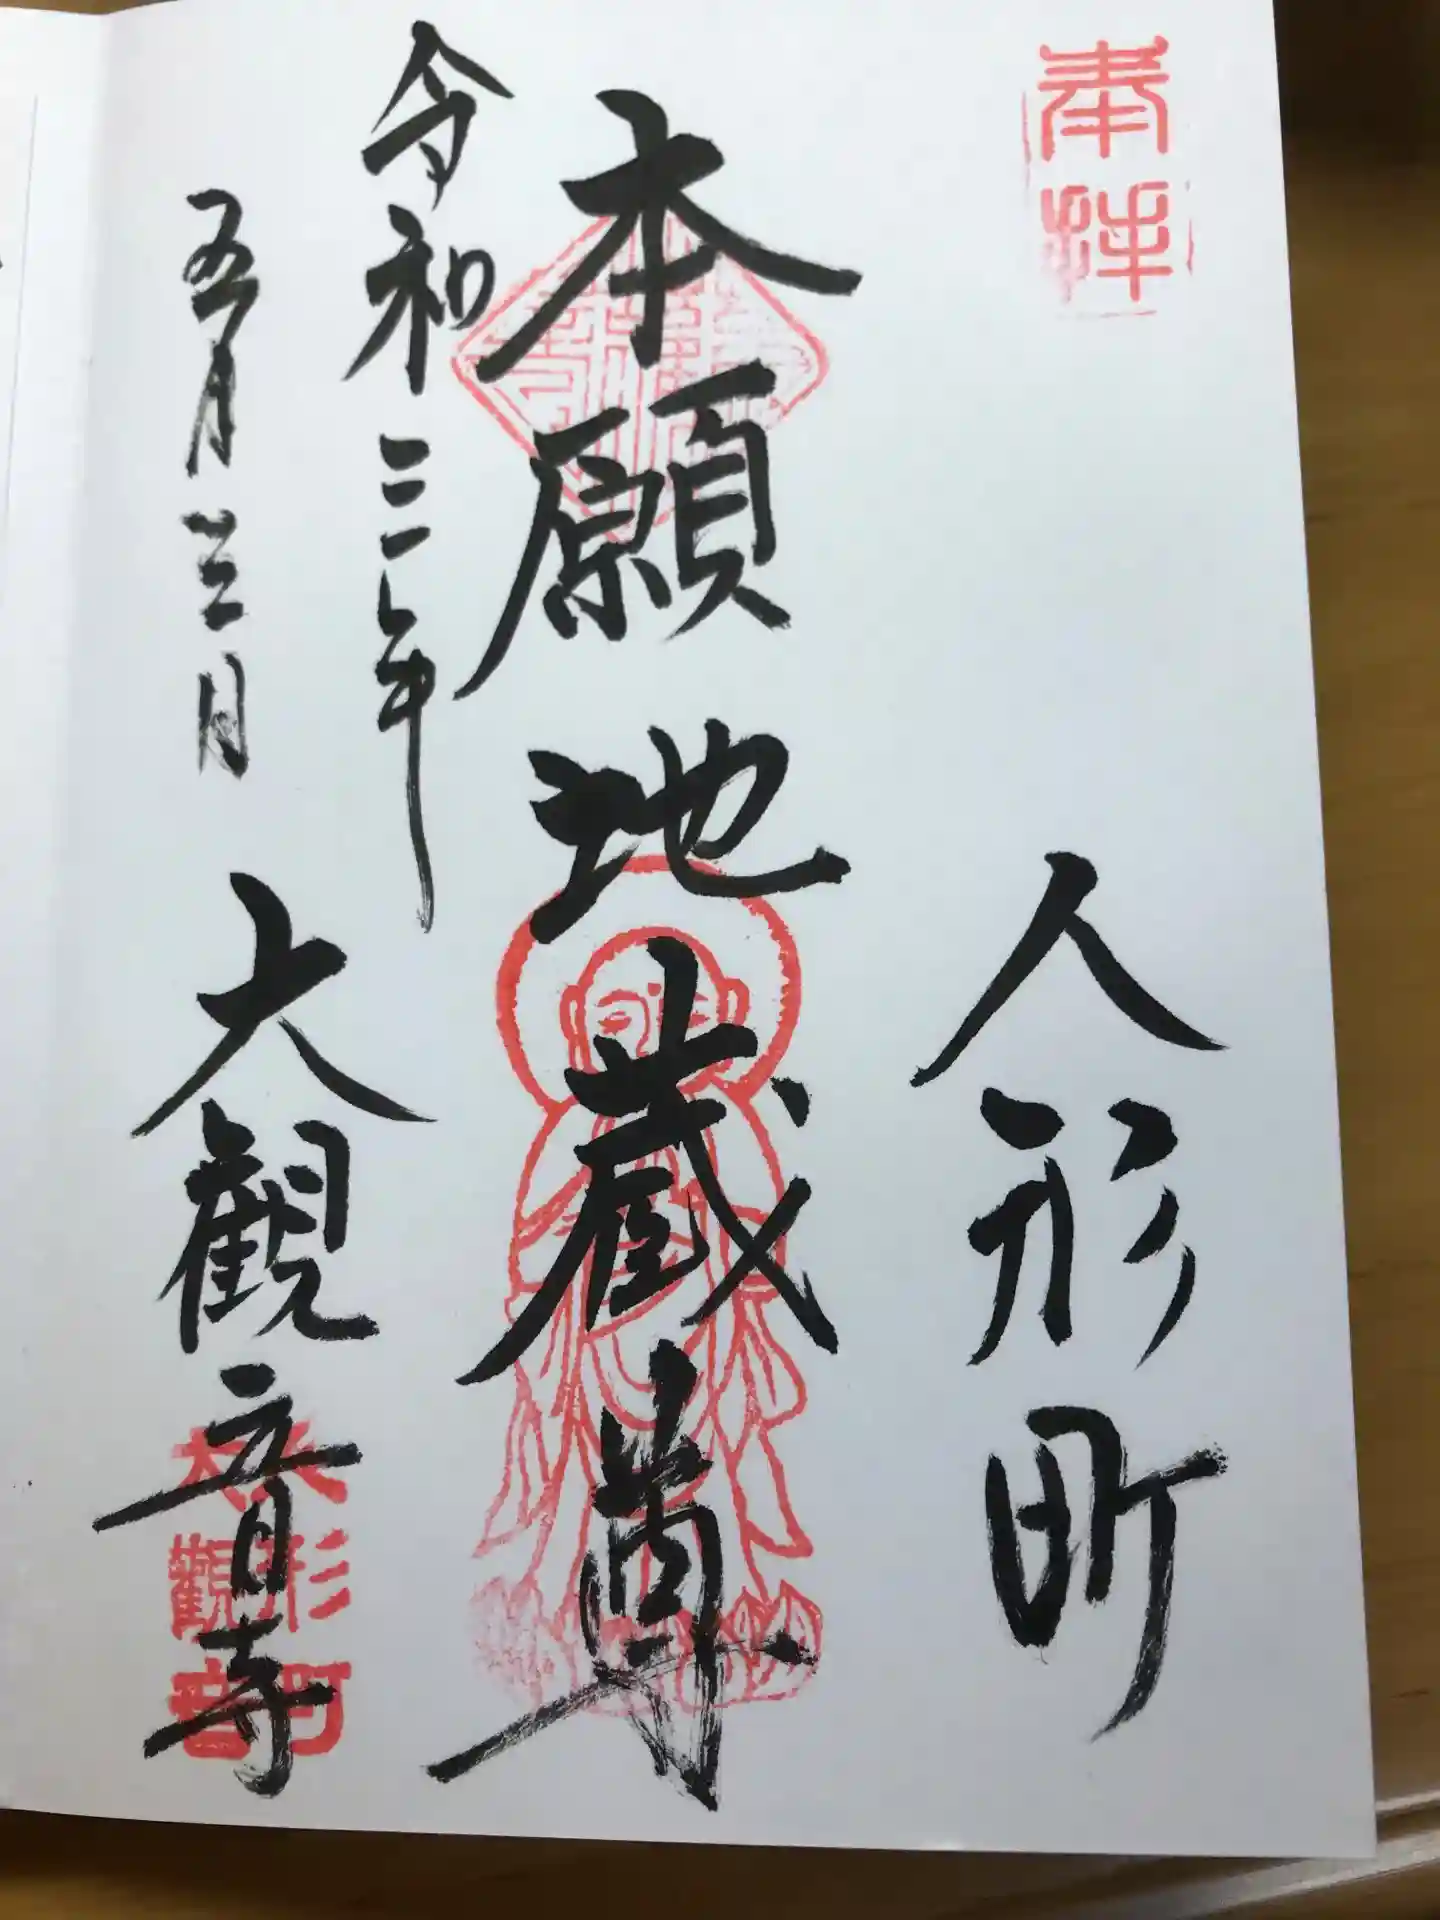 奉拝
人形町
本願地蔵尊
令和三年
五月 日
大観音寺
人形町
大觀音